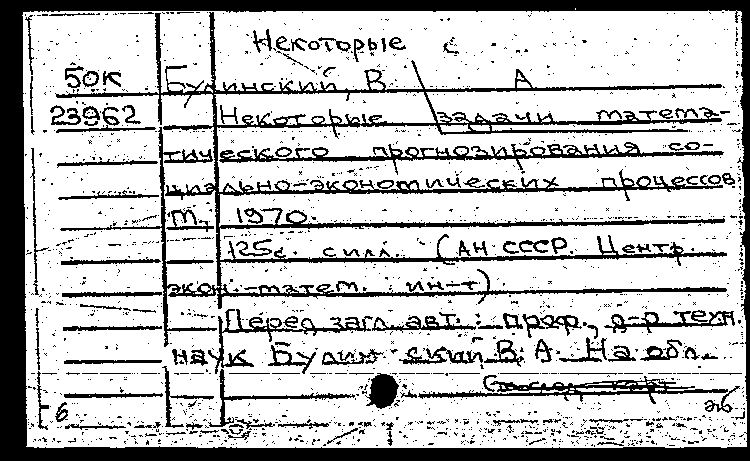 Некоторые
50К Булинский, В А
23962 Некоторые задачи матема-
тического прогнозирования со-
циально-экономических процессов
М., 1970.
125с. с илл. (АН СССР. Центр.
экон.-матем. ин-т)
Перед загл. авт.: проф., д-р техн.
наук Булинский В. А. На обл.
б